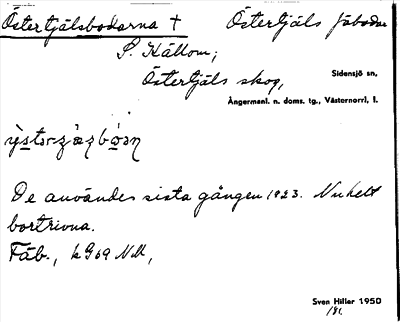 Östertjälsbodarna † Östertjäls fäbodar
S. Källom;
Östertjäls skog,
Sidensjö sn,
Ångermanl. n. doms. tg., Västernorrl, l.
De användes sista gången 1923. Nu helt
bortrivna.
Fäb., kG69 NM,
Sven Hiller 1950
/81.